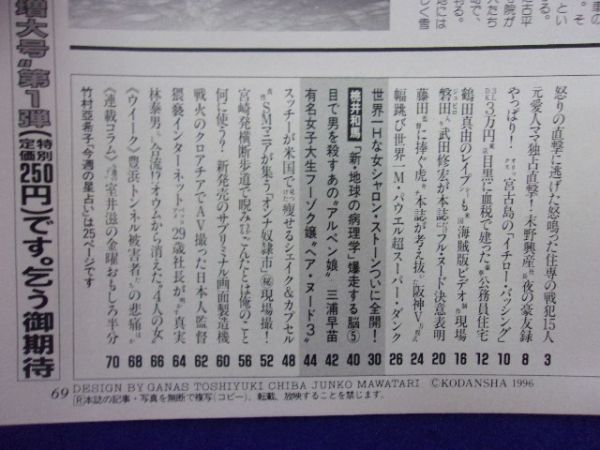 増大号〟第1弾(特別定価250円)です。乞う御期待
竹村亜希子「今週の星占い」は25ページです
怒りの直撃に逃げた怒鳴った住専の戦犯15人 3
元愛人ママ独占直撃!末野興産 夜の豪友録 8
やっぱり! 宮古島の「イチロー・バッシング」 10
3万円 目黒に血税で建った公務員住宅 12
鶴田真由のレイプ も 海賊版ビデオ 現場 16
磐田 武田修宏が本誌に「フル・ヌード」決意表明 20
藤田 に捧ぐ虎 本誌が考え抜 阪神V 24
幅跳び世界一M・パウエル超スーパー・ダンク 26
世界一Hな女シャロン・ストーンついに全開! 30
桃井和馬「新・地球の病理学」爆走する脳⑤ 40
目で男を殺すあの〝アルペン娘〟三浦早苗 42
有名女子大生フーゾク嬢〝ヘア・ヌード3〟 44
スッチーが米国で 痩せるシェイク&カプセル 48
SMマニアが集う「オンナ奴隷市」㊙現場撮! 52
宮崎発横断歩道で睨み たとは俺のこと 56
何に使う?新発売のサブリミナル画面製造機 60
戦火のクロアチアでAV撮った日本人監督 62
猥褻インターネット 29歳社長が 真実 64
林泰男 合流!?オウムから消えた〝4人の女〟 66
《ウイーク》豊浜トンネル被害者 の悲痛 68
《連載コラム》 室井滋の金曜おもしろ半分 70
69 DESIGN BY GANAS TOSHIYUKI CHIBA JUNKO MAWATARI ©KODANSHA 1996
Ⓡ本誌の記事・写真を無断で複写(コピー)、転載、放映することを禁じます。